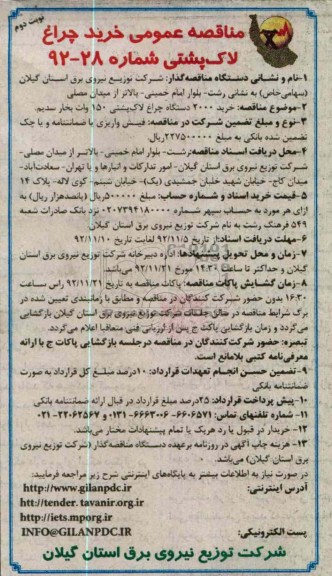 نوبت دوم
مناقصه عمومی خرید چراغ
لاک‌پشتی شماره ۲۸-۹۲
۱-نام و نشانی دستگاه مناقصه‌گذار: شرکت توزیع نیروی برق استان گیلان
(سهامی‌خاص) به نشانی رشت- بلوار امام خمینی- بالاتر از میدان مصلی
۲-موضوع مناقصه: خرید ۲۰۰۰ دستگاه چراغ لاک‌پشتی ۱۵۰ وات بخار سدیم.
۳-نوع و مبلغ تضمین شرکت در مناقصه: فیش واریزی یا ضمانتنامه و یا چک
تضمین شده بانکی به مبلغ ۲۲۷۵۰۰۰۰۰ریال.
۴-محل دریافت اسناد مناقصه:رشت- بلوار امام خمینی- بالاتر از میدان مصلی-
شرکت توزیع نیروی برق استان گیلان- امور تدارکات و انبارها و یا تهران- سعادت‌آباد-
میدان کاج- خیابان شهید خلبان جمشیدی (یک)- خیابان شبنم- کوی لاله- پلاک ۱۴
۵-قیمت خرید اسناد و شماره حساب: مبلغ ۵۰۰۰۰۰ریال (پانصدهزار ریال) به
ازای هر مورد به حساب سپهر شماره ۰۲۰۷۳۹۴۱۸۰۰۰ نزد بانک صادرات شعبه
۵۴۹ فرهنگ رشت به نام شرکت توزیع نیروی برق استان گیلان.
۶-مهلت دریافت اسناد:از تاریخ ۹۲/۱۱/۵ لغایت تاریخ ۹۲/۱۱/۱۰
۷-زمان و محل تحویل پیشنهادها: اداره دبیرخانه شرکت توزیع نیروی برق استان
گیلان و حداکثر تا ساعت ۱۴:۳۰ مورخ ۹۲/۱۱/۲۱ می‌باشد.
۸-زمان گشایش پاکات مناقصه: پاکات مناقصه به تاریخ ۹۲/۱۱/۲۱ راس ساعت
۱۶:۳۰ بدون حضور شرکت کنندگان در مناقصه و مطابق با زمانبندی تعیین شده در
برگ شرایط مناقصه در سالن جلسات شرکت توزیع نیروی برق استان گیلان بازگشایی
می‌گردد و زمان بازگشایی پاکت ج پس از ارزیابی فنی متعاقبا اعلام می‌گردد.
تبصره: حضور شرکت‌کنندگان در مناقصه درجلسه بازگشایی پاکات ج با ارائه
معرفی‌نامه کتبی بلامانع است.
۹-تضمین حسن انجام تعهدات قرارداد: ۱۰درصد مبلغ کل قرارداد به صورت
ضمانتنامه بانکی.
۱۰-پیش پرداخت قرارداد: ۲۵درصد مبلغ قرارداد در قبال ارائه ضمانتنامه بانکی
۱۱- شماره تلفنهای تماس: ۶۶۰۶۵۷۱- ۶۶۶۳۰۰۶-۰۱۳۱ و ۲۲۰۶۲۵۶۷-۰۲۱
۱۲- خریدار در قبول یا رد هریک یا تمام پیشنهادات مختار می‌باشد.
۱۳- هزینه چاپ آگهی در روزنامه برعهده دستگاه مناقصه‌گذار (شرکت توزیع نیروی
برق استان گیلان) می‌باشد.
در صورت نیاز به اطلاعات بیشتر به پایگاه‌های اینترنتی شرح زیر مراجعه فرمایید:
آدرس اینترنتی: http://www.gilanpdc.ir
htt://tender.tavanir.org.ir
http://iets.mporg.ir
پست الکترونیکی: INFO@GILANPDC.IR
شرکت توزیع نیروی برق استان گیلان